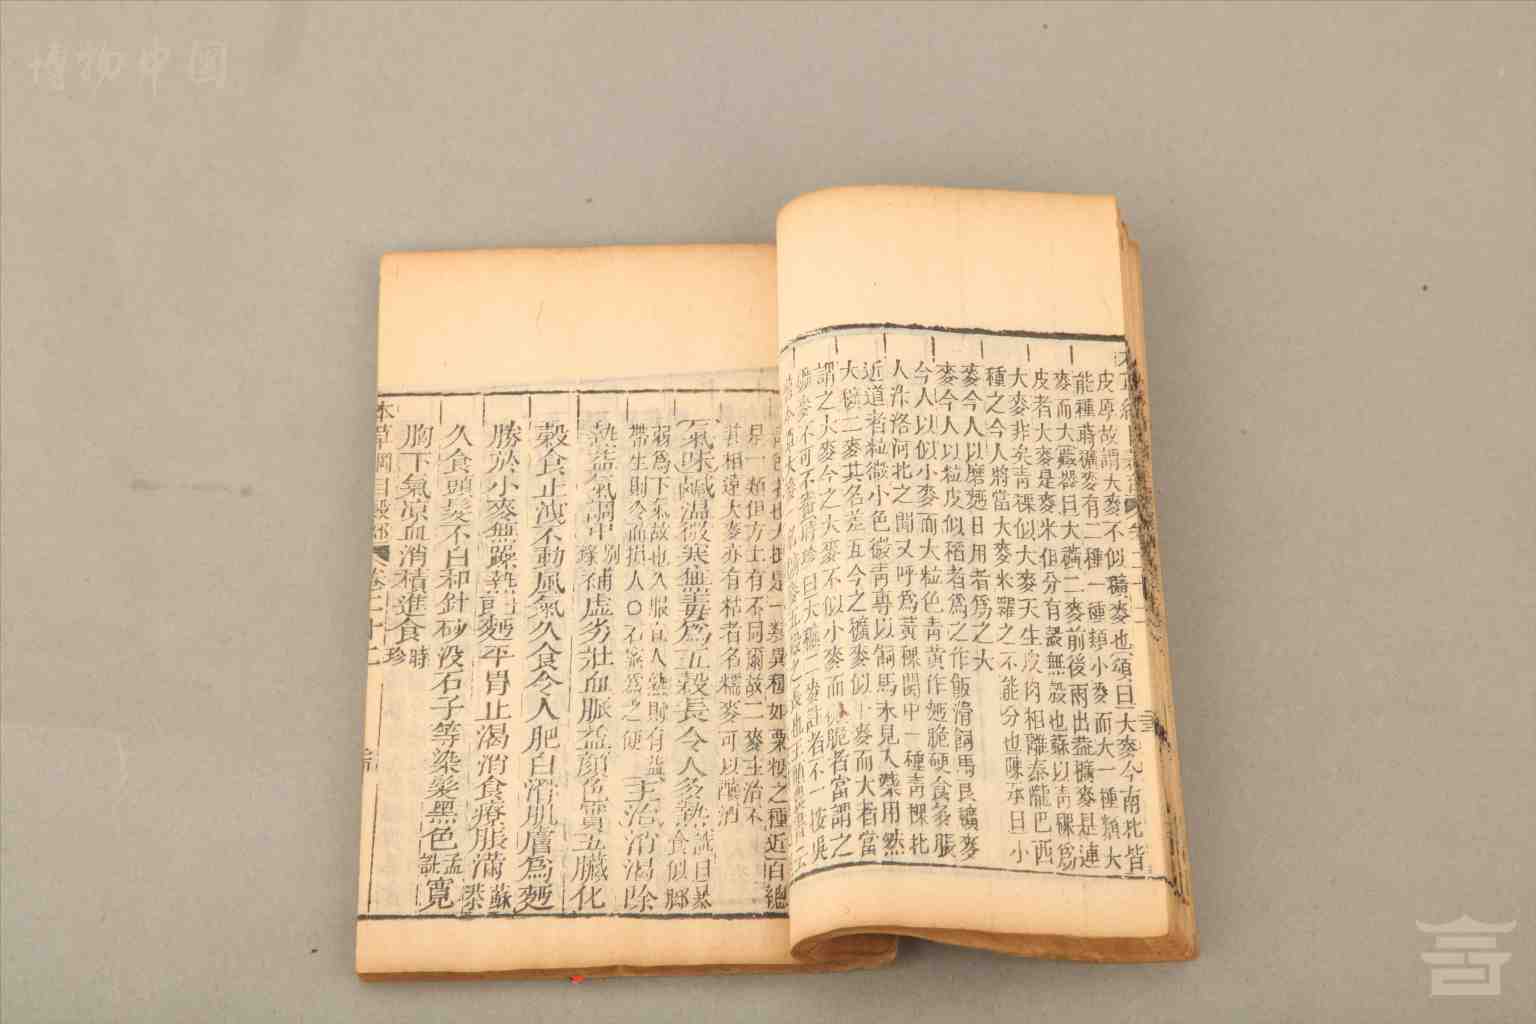 博物中国
皮厚故謂大麥不似穬麥也頌曰大麥今南北皆
能種蒔穬麥有二種一種類小麥而大一種類大
麥而大藏器曰大穬二麥前後兩出蓋穬麥是連
皮者大麥是麥米但分有殼無殼也蘇以青稞爲
大麥非矣青稞似大麥天生皮肉相離秦隴巴西
種之今人將當大麥米糶之不能分也陳承曰小
麥今人以磨麪日用者爲之大
麥今人以粒皮似稻者爲之作飯滑飼馬良穬麥
今人以似小麥而大粒色青黃作麪脆硬食多脹
人汴洛河北之間又呼爲黃稞關中一種青稞比
近道者粒微小色微青專以飼馬未見入藥用然
大穬二麥其名差互今之穬麥似小麥而大者當
謂之大麥今之大麥不似小麥而脆者當謂之
穬麥不可不審時珍曰大穬二麥註者不一按吳
是一類但方土有不同爾故二麥主治不
甚相遠大麥亦有粘者名糯麥可以釀酒
氣味鹹溫微寒無毒爲五穀長令人多熱詵曰暴食似脚
弱爲下氣故也久服宜人熟則有益
帶生則冷而損人○石蜜爲之使
主治消渴除
熱益氣調中別錄補虛劣壯血脈益顏色實五臟化
穀食止洩不動風氣久食令人肥白滑肌膚爲麪
勝於小麥無躁熱士良麪平胃止渴消食療脹滿蘇恭
久食頭髮不白和針砂沒石子等染髮黑色孟詵寬
胸下氣凉血消積進食時珍
本草綱目穀部 卷二十二